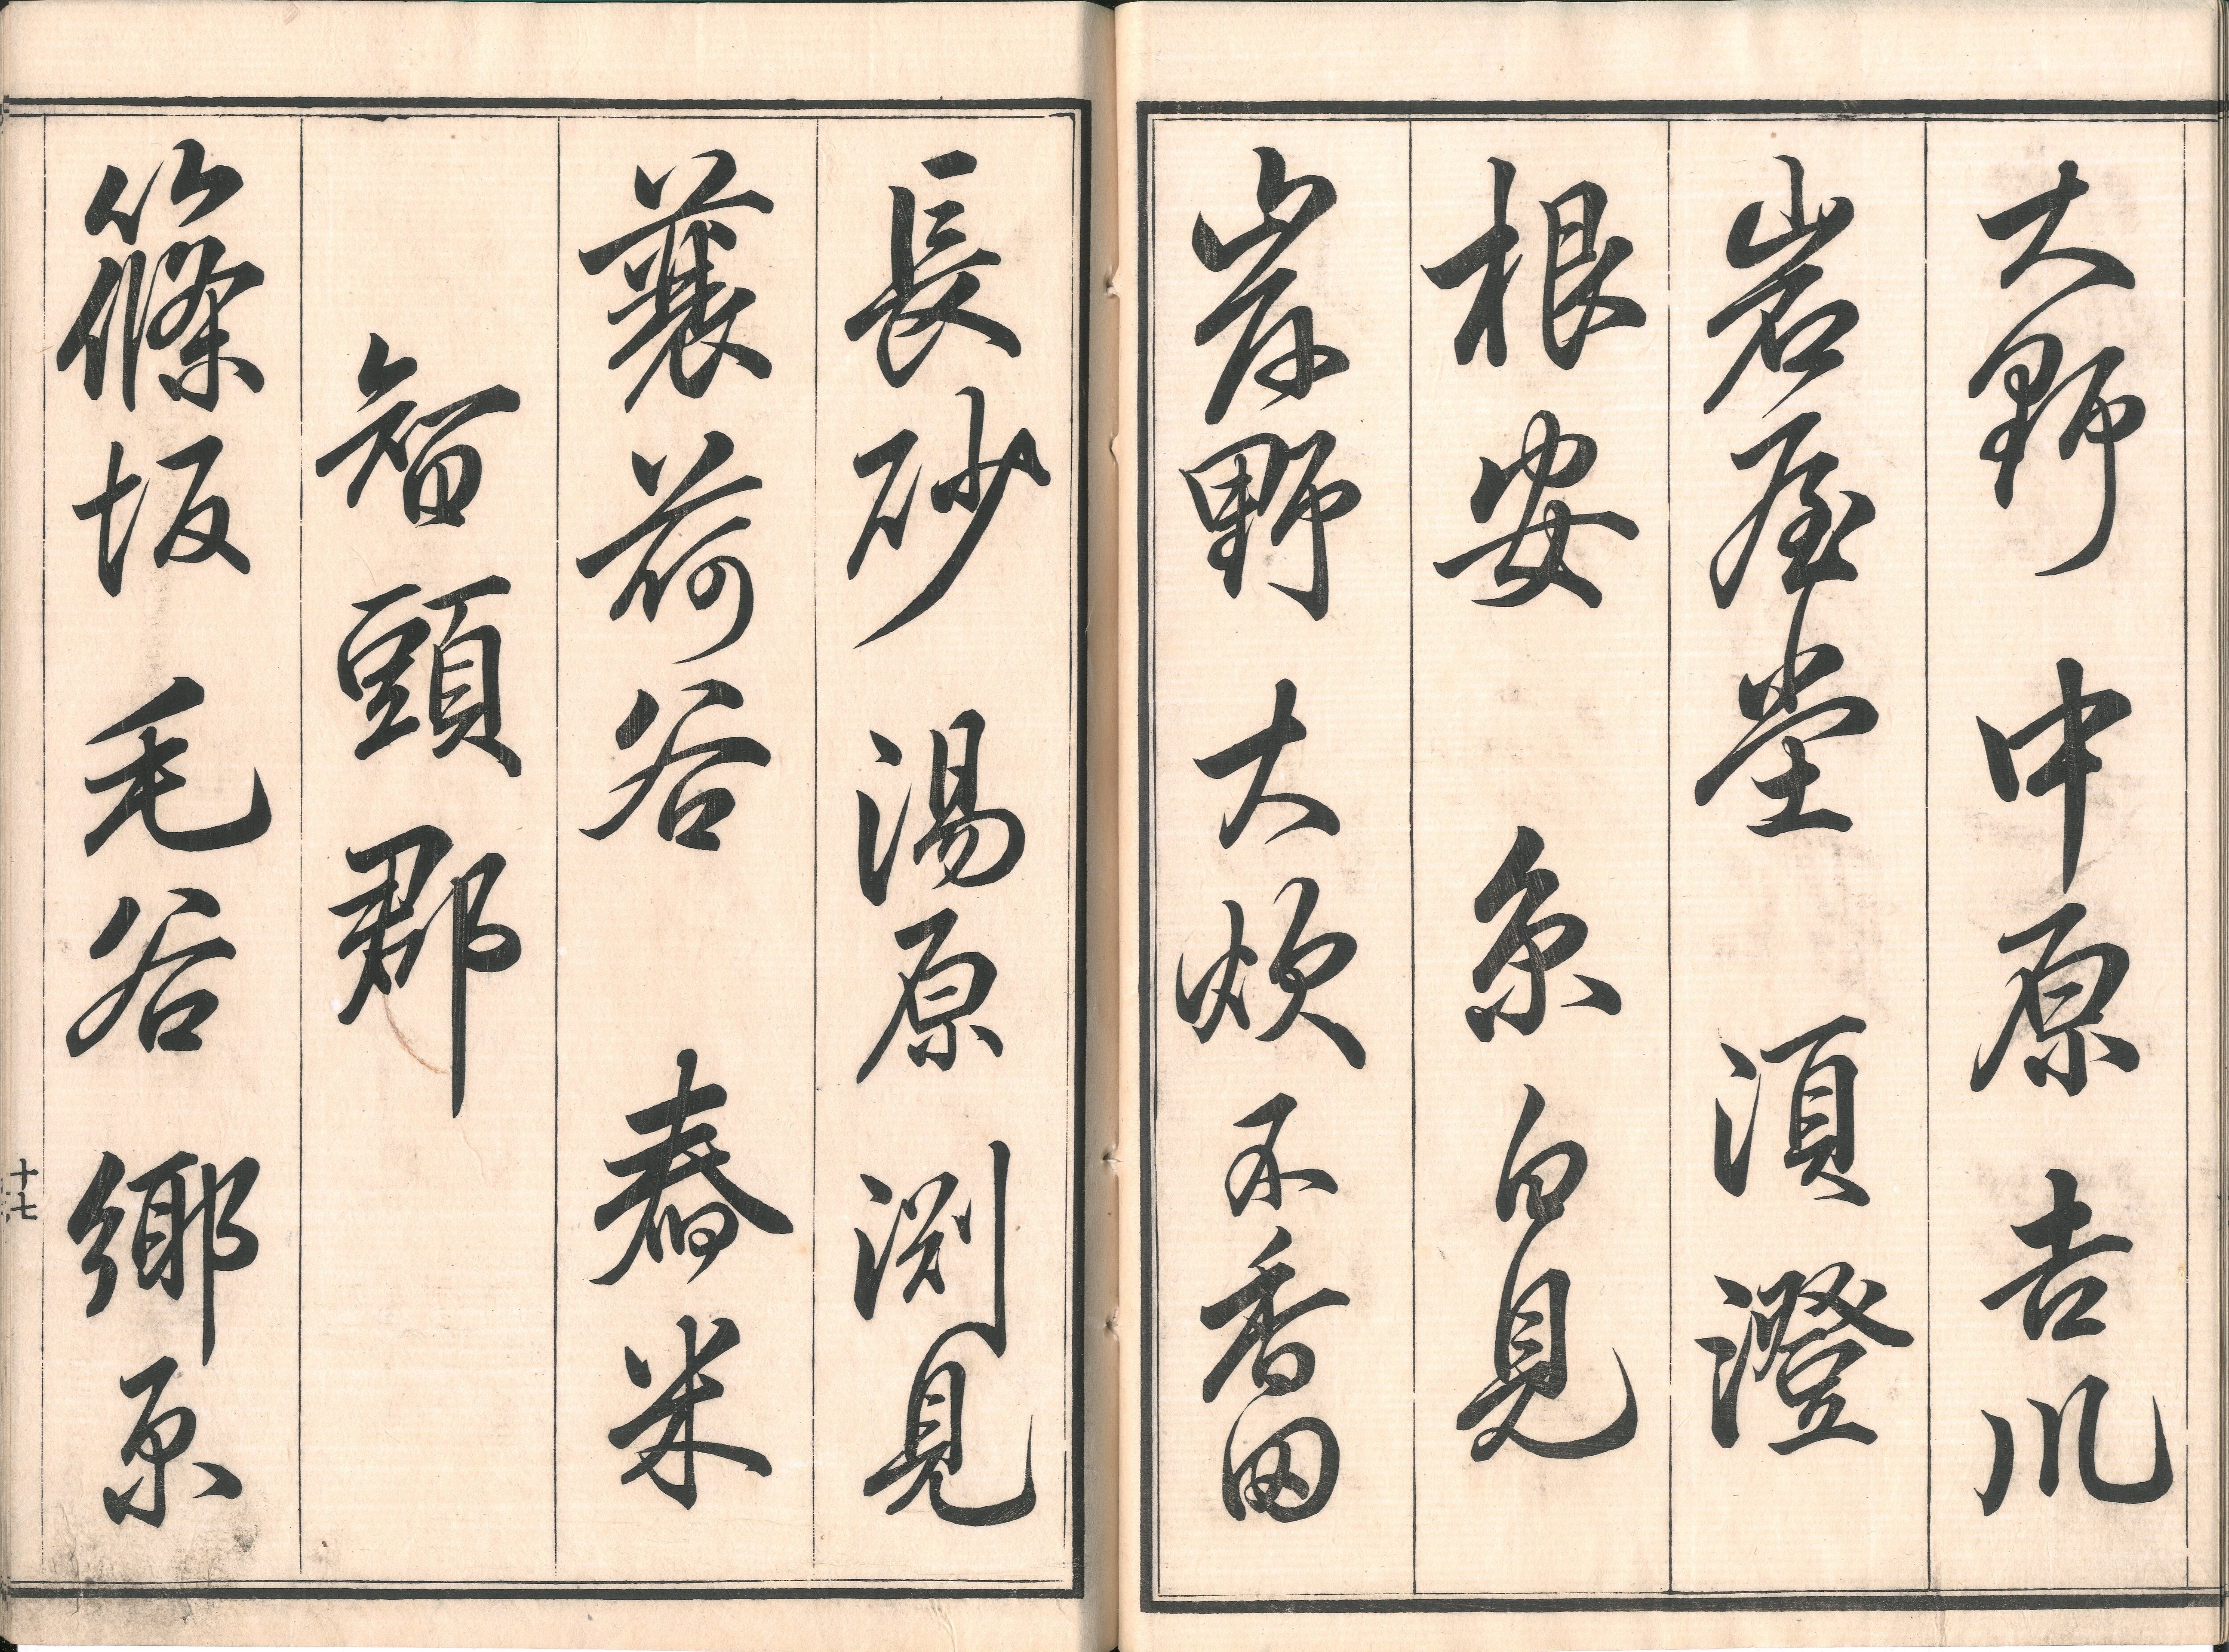 大野 中原 吉川
岩屋堂 須澄
根安 糸白見
岸野 大炊 不香田
長砂 湯原 渕見
蘘荷谷 舂米
智頭郡
篠坂 毛谷 郷原
十七